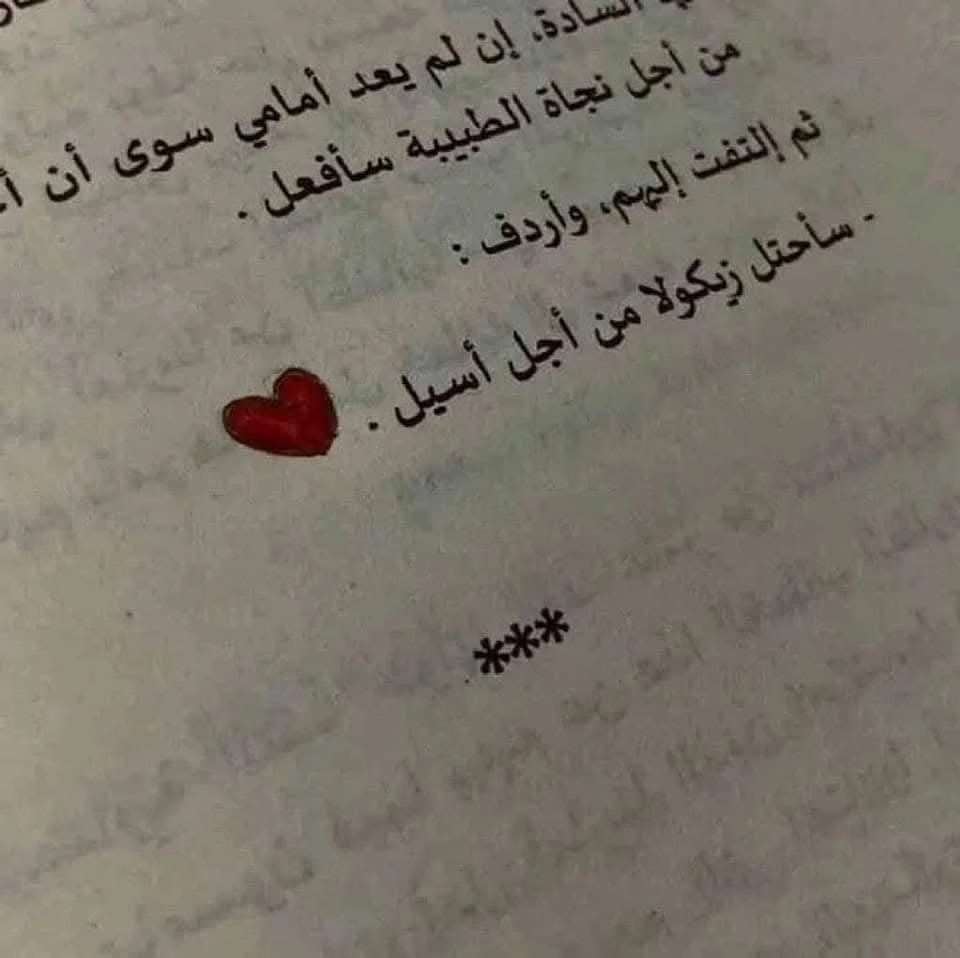 السادة، إن لم يعد أمامي سوى أن
من أجل نجاة الطبيبة سأفعل .
ثم إلتفت إليهم، وأردف :
- سأحتل زيكولا من أجل أسيل .
***